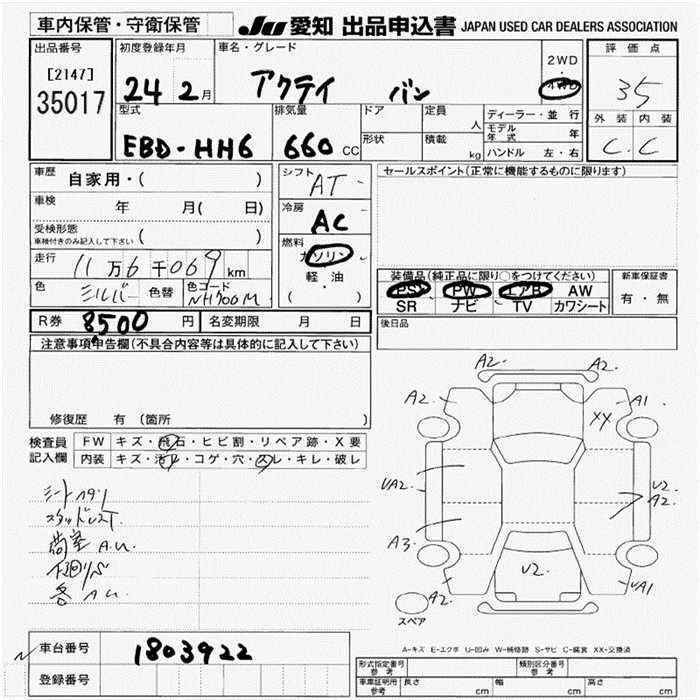 車内保管・守衛保管 JU 愛知 出品申込書 JAPAN USED CAR DEALERS ASSOCIATION
出品番号
[2147]
35017
初度登録年月
24 2月
車名・グレード
アクテイ バン
2WD
・
4WD
評価点
35
外装 内装
C. C
型式
EBD-HH6
排気量
660 CC
ドア
形状
定員 人
積載 kg
ディーラー・並行
モデル年式 年
ハンドル 左・右
車歴 自家用・( )
車検 年 月( 日)
受検形態
車検付きのみ記入して下さい ( )
走行
11万6千069km
色 シルバー 色替 色コード NH700M
シフト AT
冷房 AC
燃料
ガソリン
・
軽油
( )
セールスポイント(正常に機能するものに限ります)
装備品(純正品に限り○をつけてください)
PS PW エアB AW
SR ナビ TV カワシート
新車保証書
有・無
後日品
R券 8500 円 名変期限 月 日
注意事項申告欄(不具合内容等は具体的に記入して下さい)
修復歴 有(箇所 )
検査員記入欄
FW キズ・飛石・ヒビ割・リペア跡・X要
内装 キズ・汚レ・コゲ・穴・スレ・キレ・破レ
シートヤブレ
スタッドレスT
荷室 A.U.
下廻リS
各 A.U.
A2 A2
A2 A1
XX
UA2 U2
A2
A3
U2
A2 UA1
スペア
A-キズ E-エクボ U-凹み W-補修跡 S-サビ C-腐食 XX-交換済
車台番号 1803922
登録番号
型式指定番号 参考
類別区分番号 参考
車庫証明用 参考 長さ cm 幅 cm 高さ cm